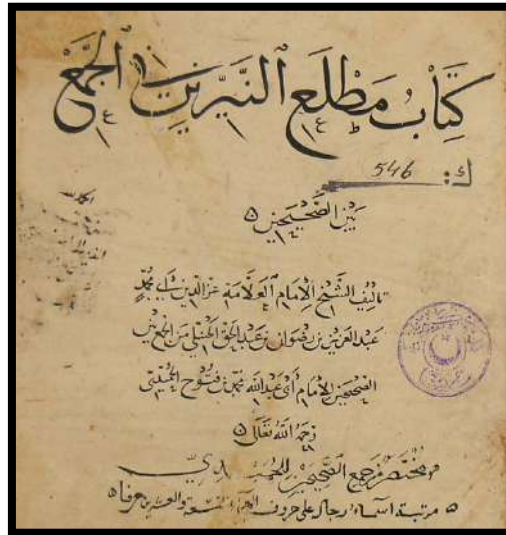 كتاب مطلع النيرين الجمع
ك: 546
بين الصحيحين
الحمد لله
تاليف الشيخ الإمام العلامة عز الدين أبي محمد
عبد العزيز بن رضوان بن عبد الحق الحنبلي من الجمع بين
الصحيحين للإمام أبي عبد الله محمد بن فتوح الحميدي
رحمه الله تعالى
مختصر من جمع الصحيحين للحميدي
مرتبة أسماء رجال على حروف المعجم التسعة والعشرين حرفا